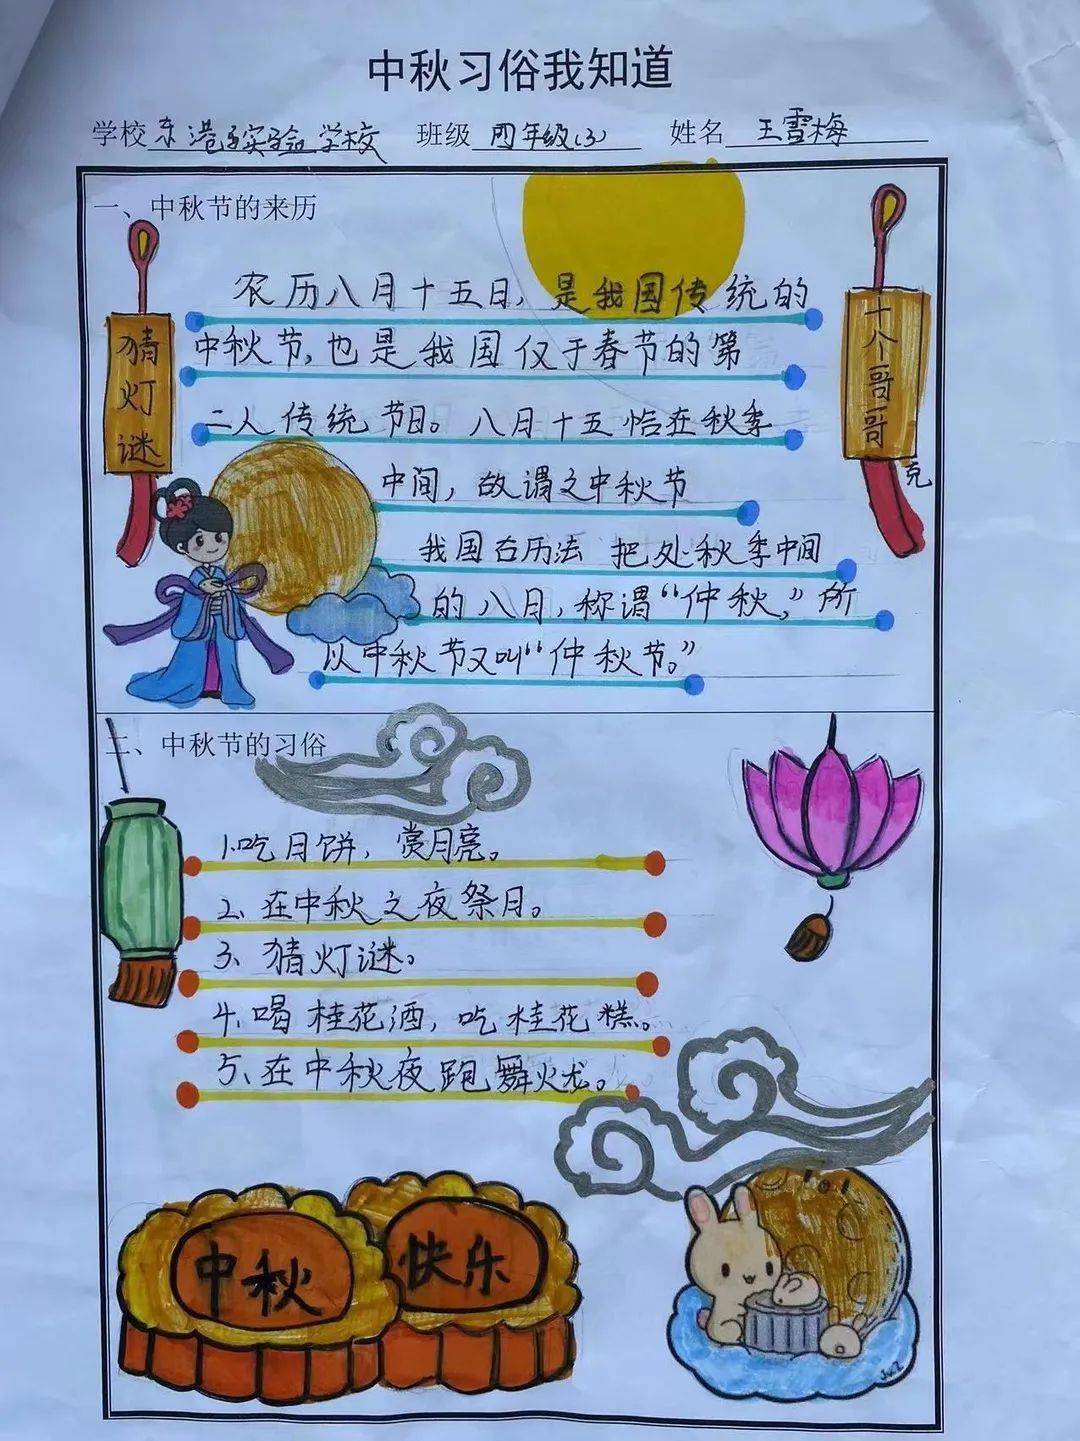 中秋习俗我知道
学校 东港实验学校 班级 四年级(3) 姓名 王雪梅
一、中秋节的来历
农历八月十五日，是我国传统的
中秋节，也是我国仅于春节的第
二人传统节日。八月十五恰在秋季
中间，故谓之中秋节
我国古历法 把处秋季中间
的八月，称谓“仲秋，”所
以中秋节又叫“仲秋节。”
猜灯谜
十八个哥哥
克
二、中秋节的习俗
1.吃月饼，赏月亮。
2、在中秋之夜祭月。
3、猜灯谜。
4、喝桂花酒，吃桂花糕。
5、在中秋夜跑舞火龙。
中秋
快乐